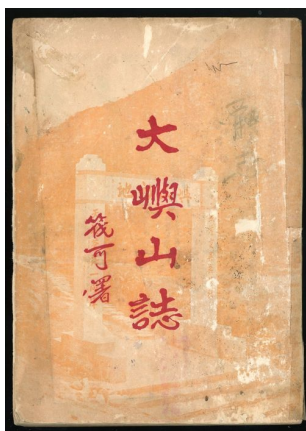 大嶼山誌
筏可署